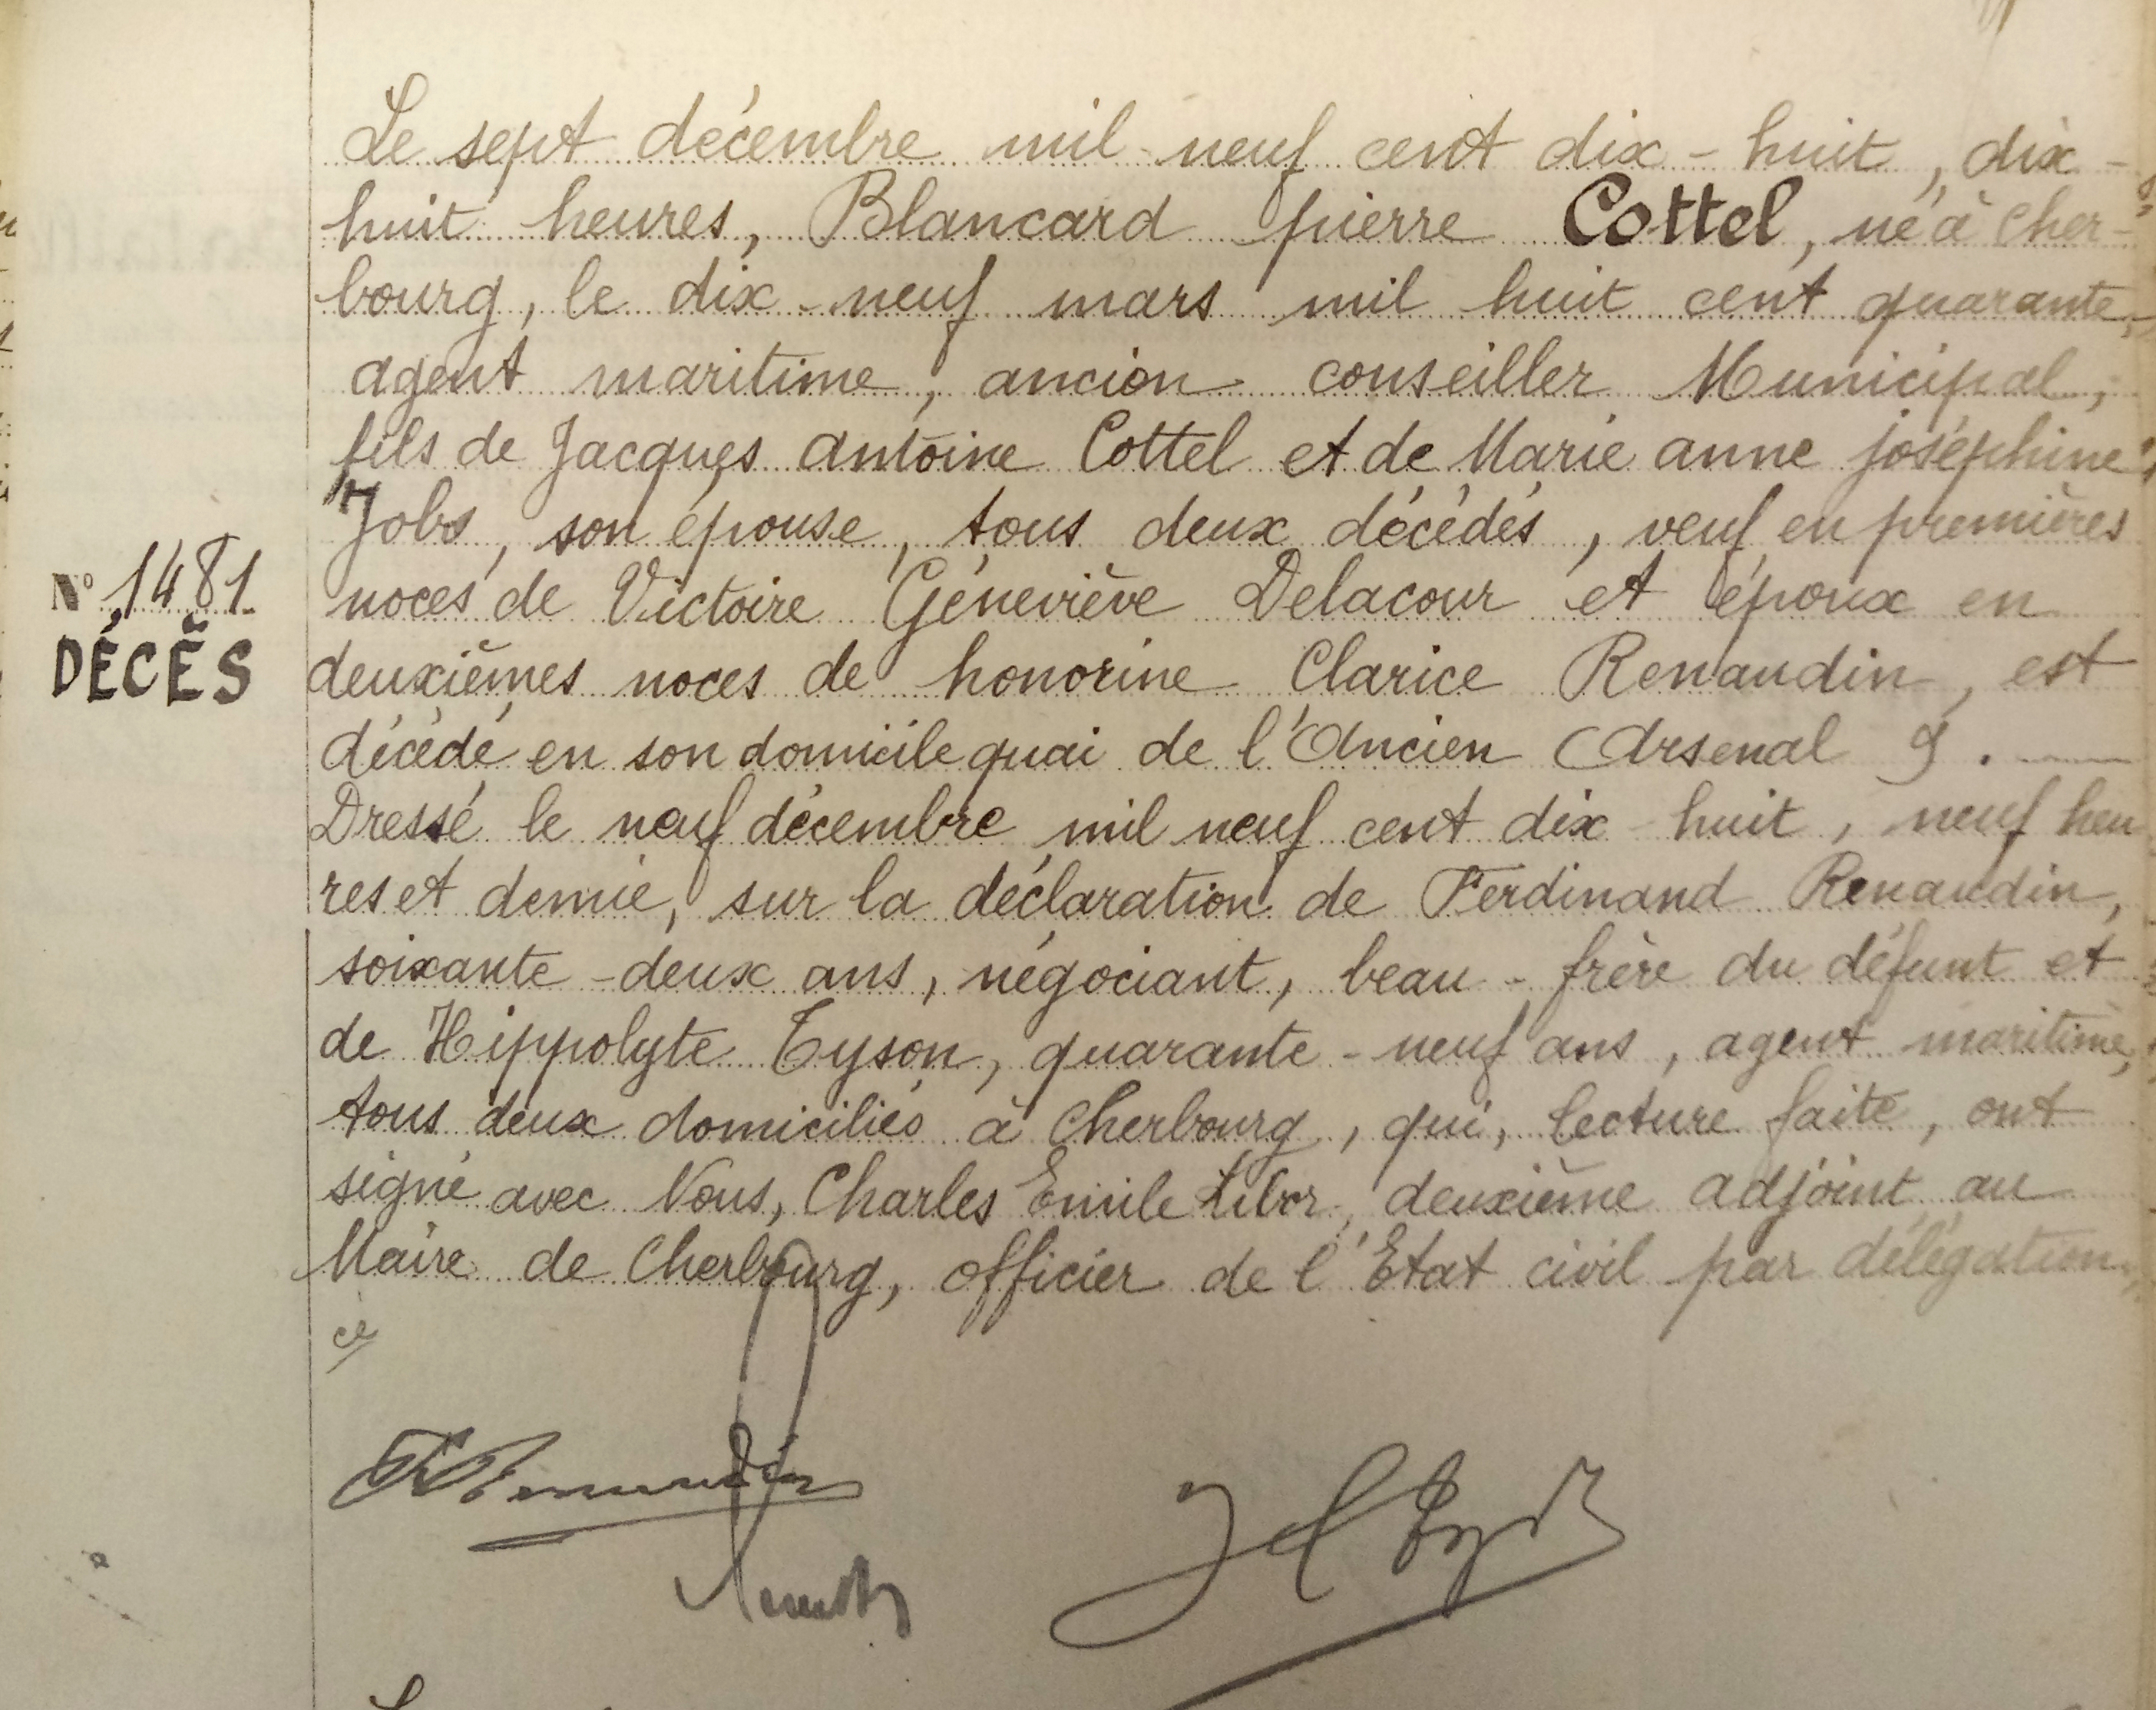 Le sept décembre mil neuf cent dix-huit, dix-
huit heures, Blancard pierre Cottel, né à Cher-
bourg, le dix-neuf mars mil huit cent quarante,
agent maritime, ancien conseiller Municipal,
fils de Jacques antoine Cottel et de Marie anne joséphine
Jobs, son épouse, tous deux décédés, veuf en premières
N° 1481
noces de Victoire Géneviève Delacour et époux en
DÉCÈS
deuxièmes noces de honorine Clarice Renaudin, est
décédé en son domicile quai de l'Ancien Arsenal 9.
Dressé le neuf décembre mil neuf cent dix-huit, neuf heu
res et demie, sur la déclaration de Ferdinand Renaudin,
soixante-deux ans, négociant, beau-frère du défunt et
de Hippolyte Tyson, quarante-neuf ans, agent maritime,
tous deux domiciliés à Cherbourg, qui, lecture faite, ont
signé avec Nous, Charles Emile Libor, deuxième adjoint au
Maire de Cherbourg, officier de l'Etat civil par délégation.